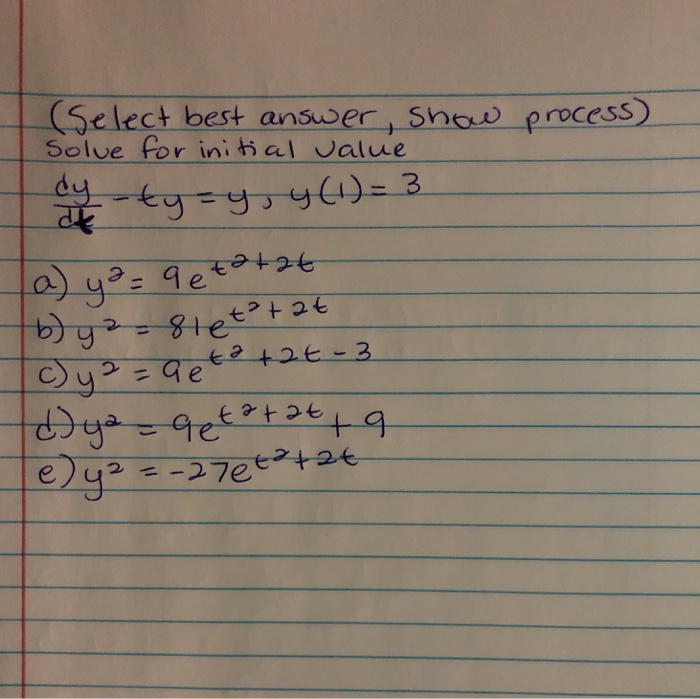 (Select best answer, show process)
Solve for initial value
dy/dt - ty = y, y(1) = 3
a) y² = 9e^t²+2t
b) y² = 81e^t²+2t
c) y² = 9e^t²+2t-3
d) y² = 9e^t²+2t + 9
e) y² = -27e^t²+2t